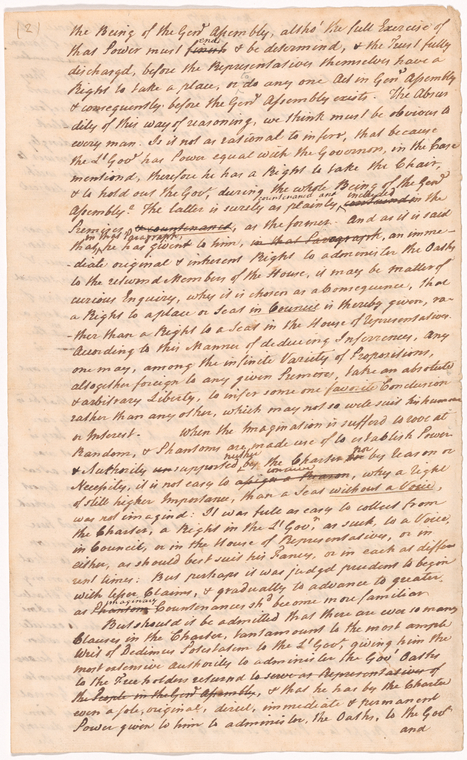 (2)
the Being of the Genl. Assembly, altho' the full Exercise of
that Power must end finish & be determind, & the Trust fully
dischargd, before the Representatives themselves have a
Right to take a place, or to do any one Act in Genl. Assembly
& consequently before the Genl. Assembly exists. The Absur
dity of this way of reasoning, we think must be obvious to
every man. Is it not as rational to infer, that because
the Lt. Govr. has Power equal with the Governor, in the Case
mentiond, therefore he has a Right to take the Chair,
& to hold out the Govr. during the whole Being of the Genl.
Assembly? The latter is surely as plainly countenancd and included contained in the
Premises & countenanced, as the former. And as it is said
that, in that Paragraph he has given to him, in that Paragraph, an imme-
diate original & inherent Right to administer the Oaths
to the returnd Members of the House, it may be matter of
curious Enquiry, why it is chosen as a Consequence, that
a Right to a place or Seat in Council is thereby given, ra-
-ther than a Right to a Seat in the House of Representatives.
According to this Manner of deducing Inferences, any
one may, among the infinite Variety of Propositions,
altogether foreign to any given Premises, take an absolute
& arbitrary Liberty, to infer some one favorite Conclusion
rather than any other, which may not so well suit his humour
or Interest. When the Imagination is sufferd to rove at
Random, & Phantoms are made use of to establish Power
& Authority un supported neither by the Charter nor by Reason or
Necessity, it is not easy to conceive assign a Reason, why a Right
of still higher Importance, than a Seat without a Voice,
was not imagind: It was full as easy to collect from
the Charter, a Right in the Lt. Govr. as such, to a Voice
in Council, or in the House of Representatives, or in
either, as should best suit his Fancy, or in each at differ
rent times: But perhaps it was judgd prudent to begin
with lesser Claims, & gradually to advance to greater,
as imaginary Phantom Countenances shd. become more familiar
But should it be admitted that there are ever so many
Clauses in the Charter, tantamount to the most ample
Writ of Dedimus Potestatem to the Lt. Govr., giving him the
most extensive Authority to administer the Govt. Oaths
to the Freeholders returnd to serve as Representatives of
the People in the Genl. Assembly, & that he has by the Charter
even a sole, original, direct, immediate & permanent
Power given to him to administer the Oaths, to the Govr.
and